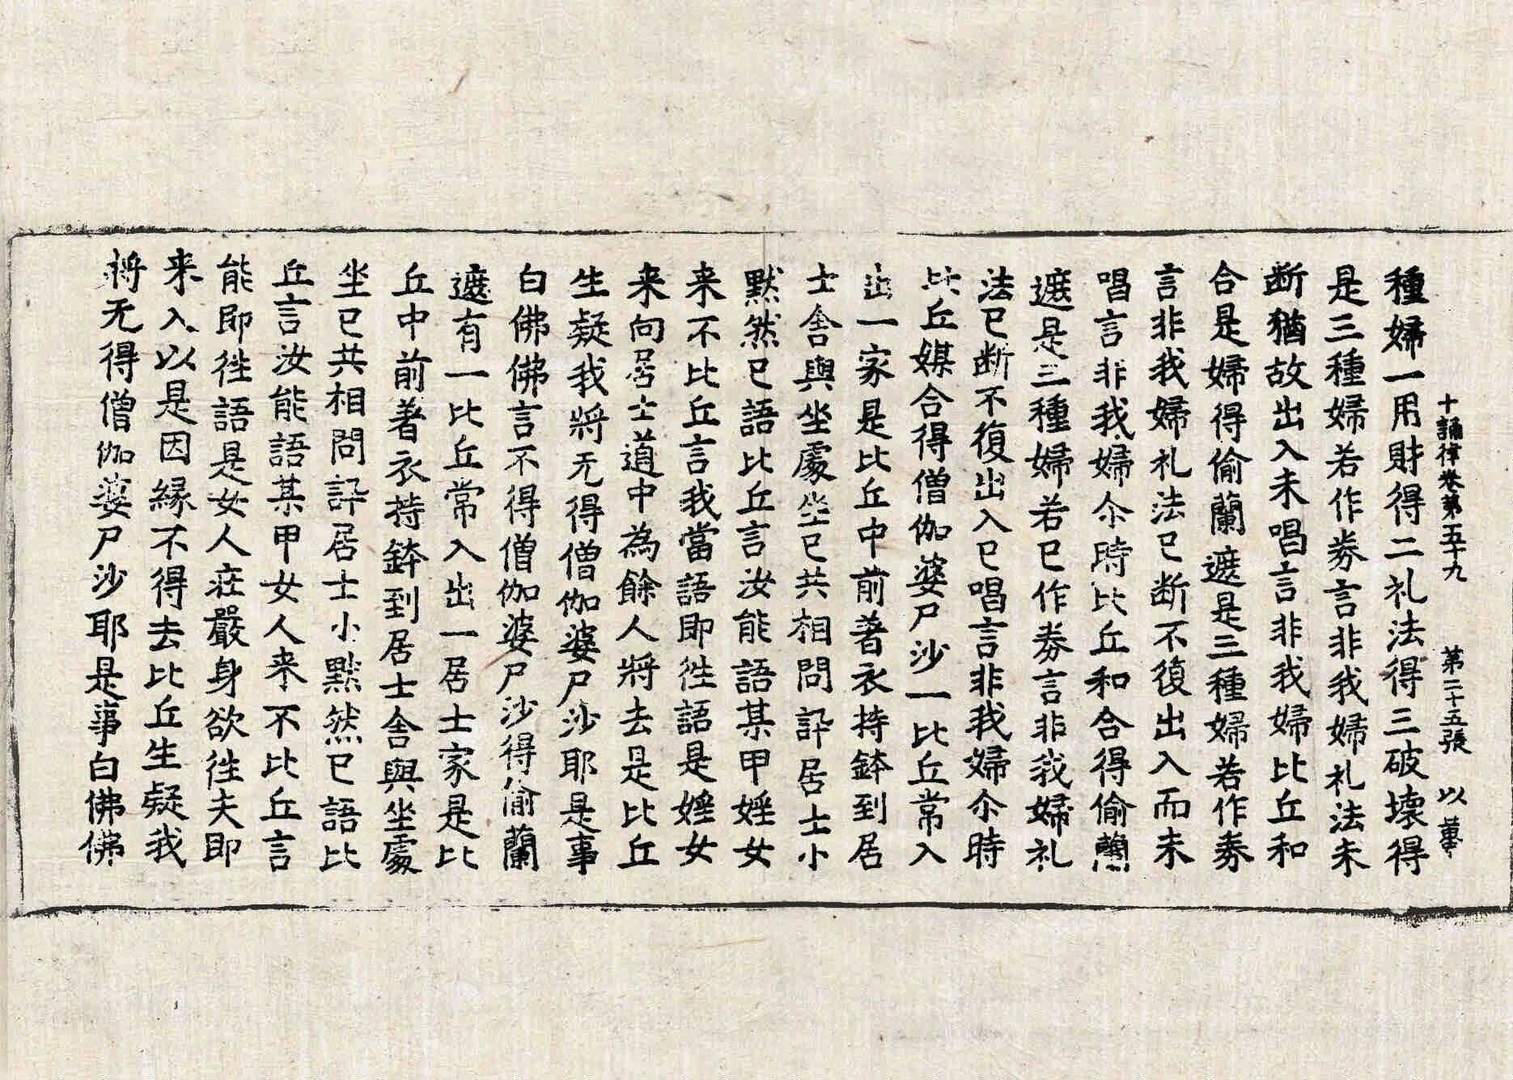 十誦律卷第五十九　第二十五張　以
種婦一用財得二礼法得三破壊得
是三種婦若作券言非我婦礼法未
断猶故出入未唱言非我婦比丘和
合是婦得偷蘭遮是三種婦若作券
言非我婦礼法已断不復出入而未
唱言非我婦尒時比丘和合得偷蘭
遮是三種婦若已作券言非我婦礼
法已断不復出入已唱言非我婦尒時
比丘媒合得僧伽婆尸沙一比丘常入
出一家是比丘中前著衣持鉢到居
士舍與坐處坐已共相問訊居士小
默然已語比丘言汝能語某甲婬女
来不比丘言我當語即徃語是婬女
来向居士道中為餘人將去是比丘
生疑我將无得僧伽婆尸沙耶是事
白佛佛言不得僧伽婆尸沙得偷蘭
遮有一比丘常入出一居士家是比
丘中前著衣持鉢到居士舍與坐處
坐已共相問訊居士小默然已語比
丘言汝能語某甲女人来不比丘言
能即徃語是女人庄嚴身欲徃夫即
来入以是因縁不得去比丘生疑我
將无得僧伽婆尸沙耶是事白佛佛